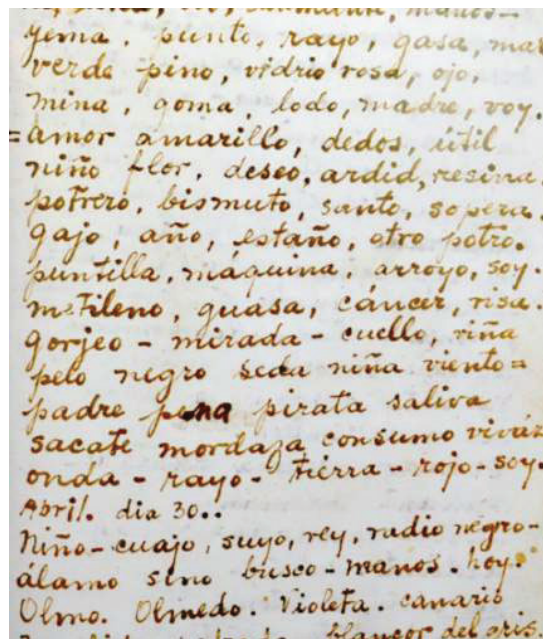 diamante, manos-
yema. punto, rayo, gasa, mar
verde pino, vidrio rosa, ojo,
mina, goma, lodo, madre, voy.
= amor amarillo, dedos, útil
niño flor, deseo, ardid, resina.
potrero, bismuto, santo, sopera.
gajo, año, estaño, otro potro.
puntilla, máquina, arroyo, soy.
metileno, guasa, cáncer, risa.
gorjeo - mirada - cuello, viña
pelo negro seda niña viento =
padre pena pirata saliva
sacate mordaza consumo viváz
onda - rayo - tierra - rojo - soy.
Abril. dia 30..
Niño - cuajo, suyo, rey, radio negro -
álamo sino busco - manos. hoy.
Olmo. Olmedo. Violeta. canario
blancor del gris